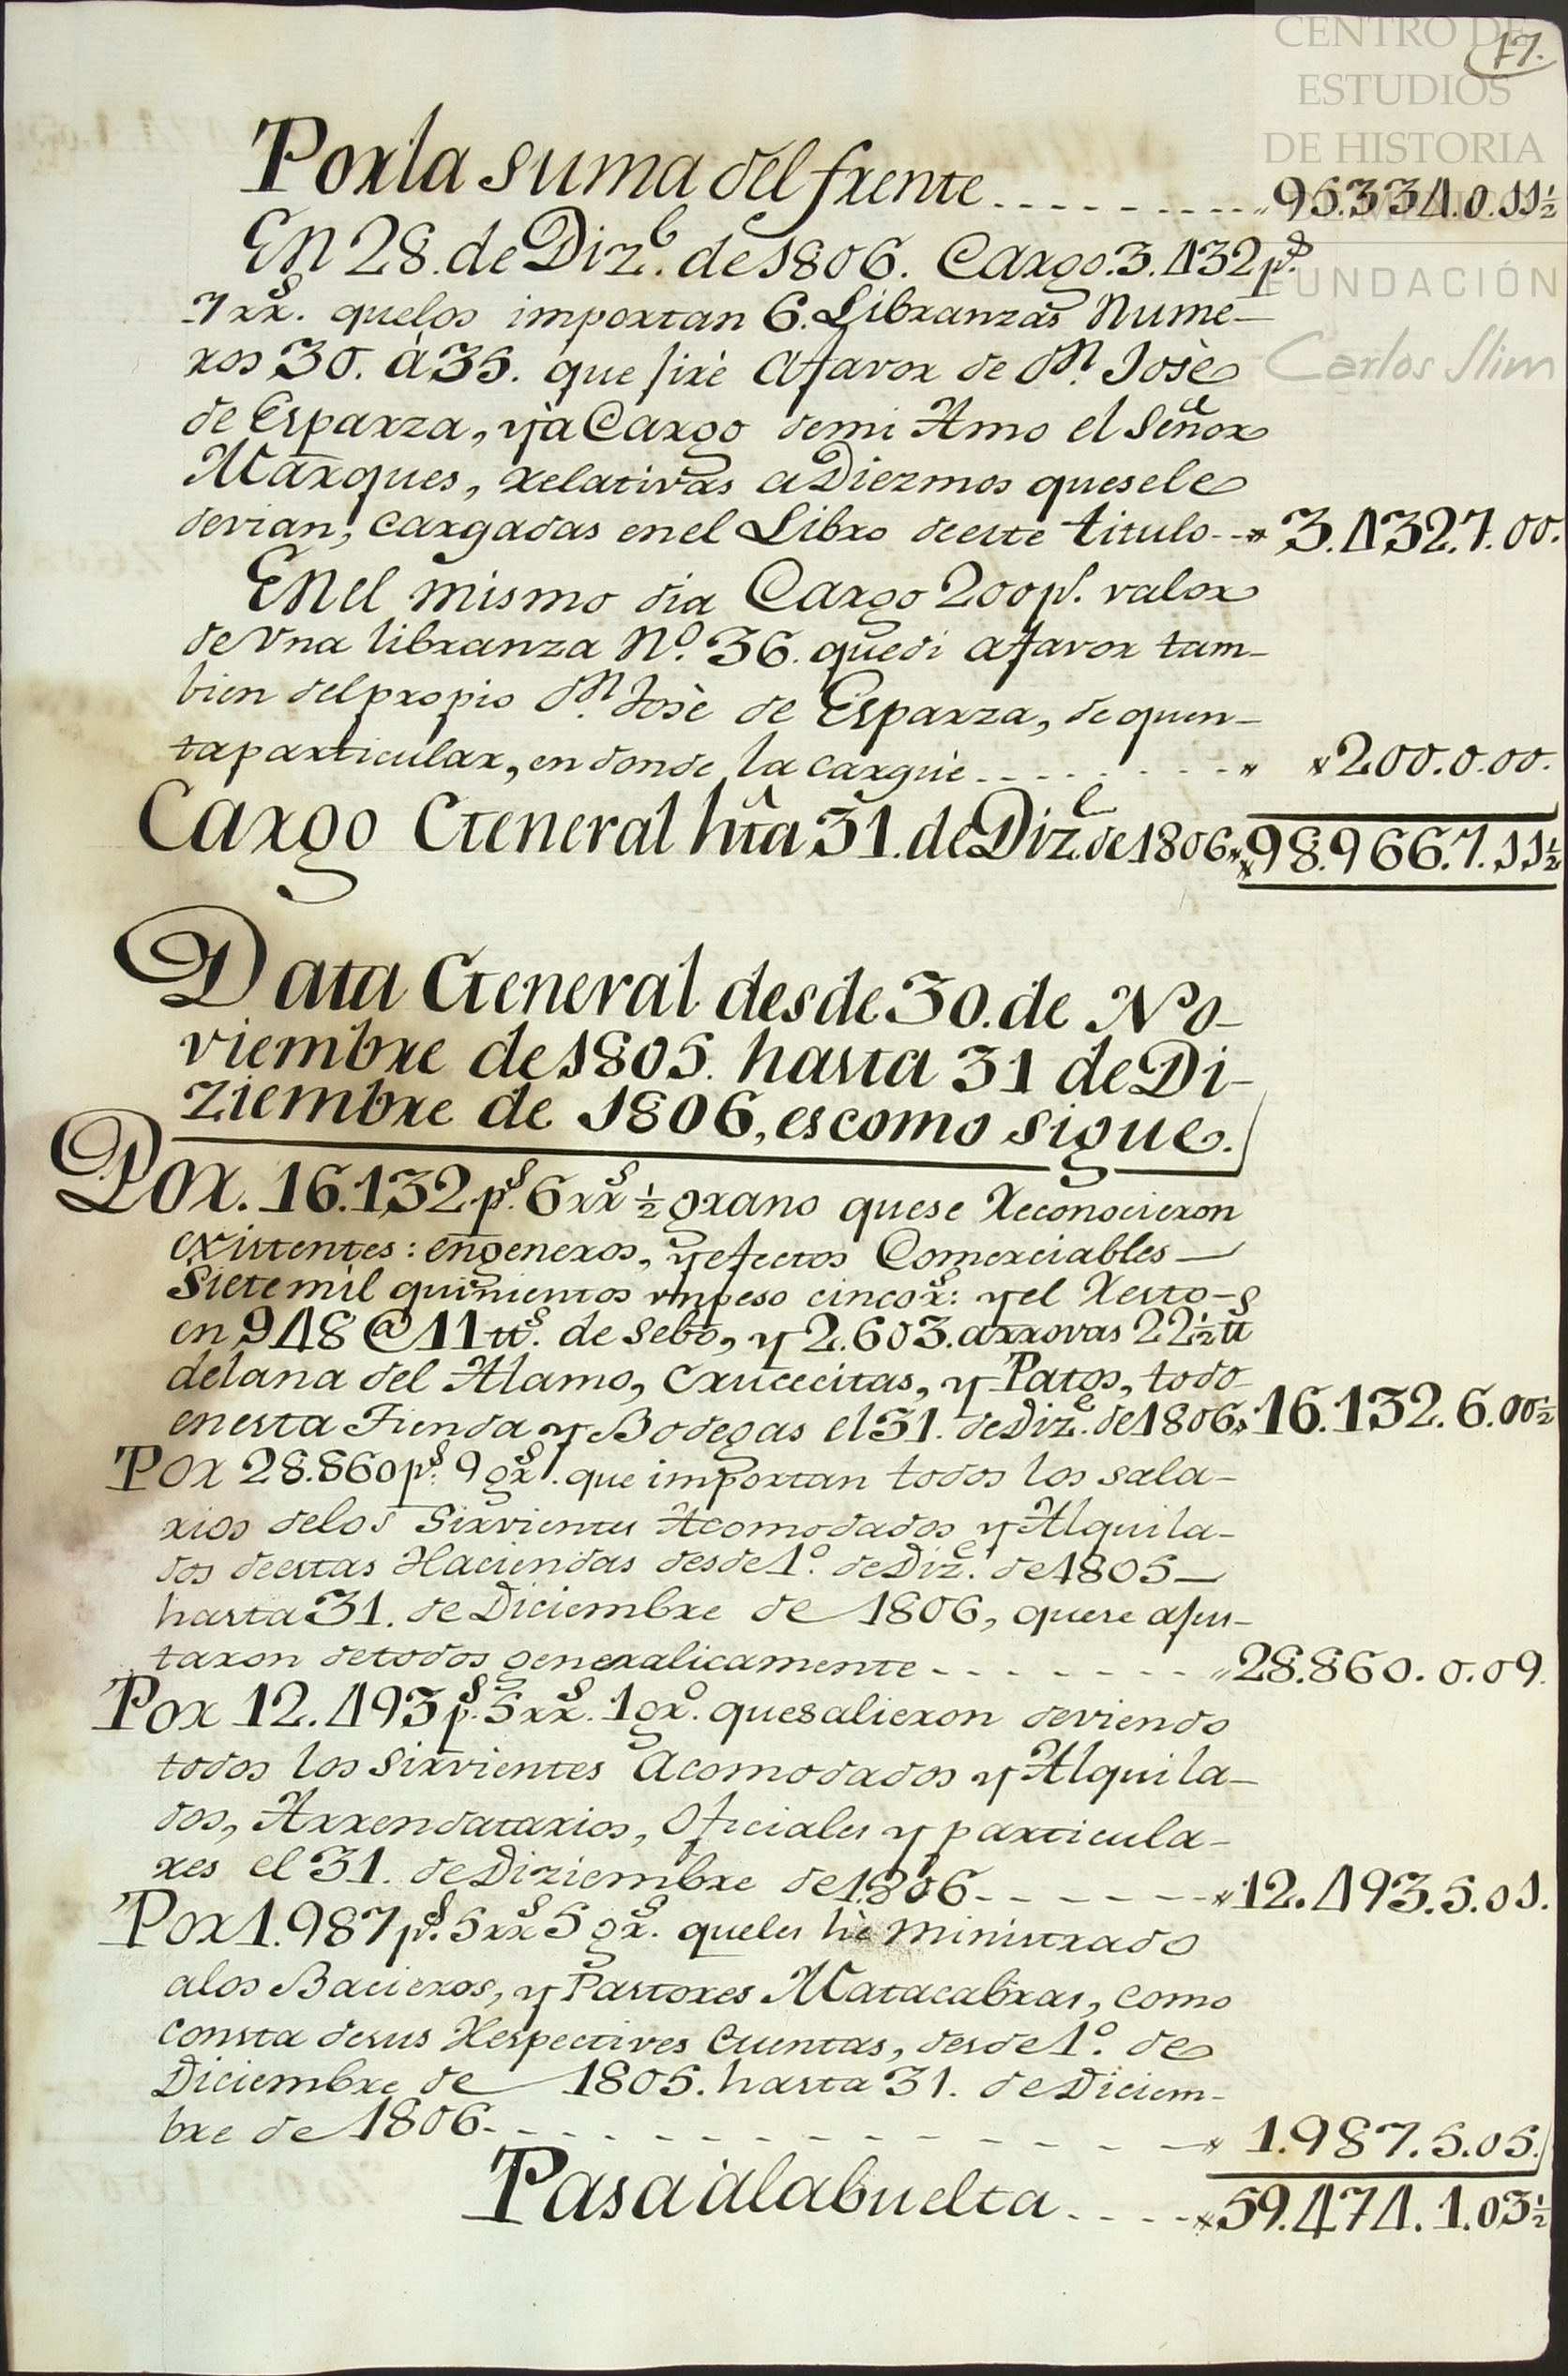 CENTRO DE
ESTUDIOS
DE HISTORIA
DE MÉXICO
FUNDACIÓN
Carlos Slim
17.
Por la suma del frente . . . . . . . . . . 95.334.0.11½
En 28. de Diz.e de 1806. Cargo. 3.432 p.s
7 rr.s que los importan 6. Libranzas Nume-
ros 30. à 35. que jirè a favor de D.n Josè
de Esparza, y à Cargo de mi Amo el Señor
Marques, relativas a Diezmos que se le
devian, cargadas en el Libro de este titulo - - 3.432.7.00.
En el mismo dia Cargo 200 p.s valor
de Vna libranza N.o 36. que di a favor tam-
bien del propio D.n Josè de Esparza, de quen-
ta particular, en donde la carguè . . . . . . . . 200.0.00.
Cargo General hta 31. de Diz.e de 1806. 98.966.7.11½
Data General desde 30. de No-
viembre de 1805. hasta 31 de Di-
ziembre de 1806, es como sigue.
Por. 16.132 p.s 6 rr.s ½ grano que se Reconocieron
existentes: en generos, y efectos Comerciables —
Siete mil quinientos un peso cinco rr.s: y el Resto -
en 948 @ 11 tt.s de Sebo, y 2.603. arrovas 22½ tt.s
de lana del Alamo, Crucecitas, y Patos, todo
en esta Tienda y Bodegas el 31. de Diz.e de 1806. 16.132.6.00½
Por 28.860 p.s 9 gr.s que importan todos los sala-
rios de los Sirvientes Acomodados y Alquila-
dos de estas Haciendas desde 1.o de Diz.e de 1805 —
hasta 31. de Diciembre de 1806, que se ajus-
taron de todos generalicamente - - - - - - - - 28.860.0.09.
Por 12.493 p.s 5 rr.s 1 gr.o que salieron deviendo
todos los Sirvientes Acomodados y Alquila-
dos, Arrendatarios, Oficiales y particula-
res el 31. de Diziembre de 1806 - - - - - - - 12.493.5.01.
Por 1.987 p.s 5 rr.s 5 gr.s que les hè ministrado
a los Bacieros, y Pastores Matacabras, como
consta de sus Respectives Cuentas, desde 1.o de
Diciembre de 1805. hasta 31. de Diciem-
bre de 1806 - - - - - - - - - - - - - - 1.987.5.05.
Pasa à la buelta . . . . . 59.474.1.03½